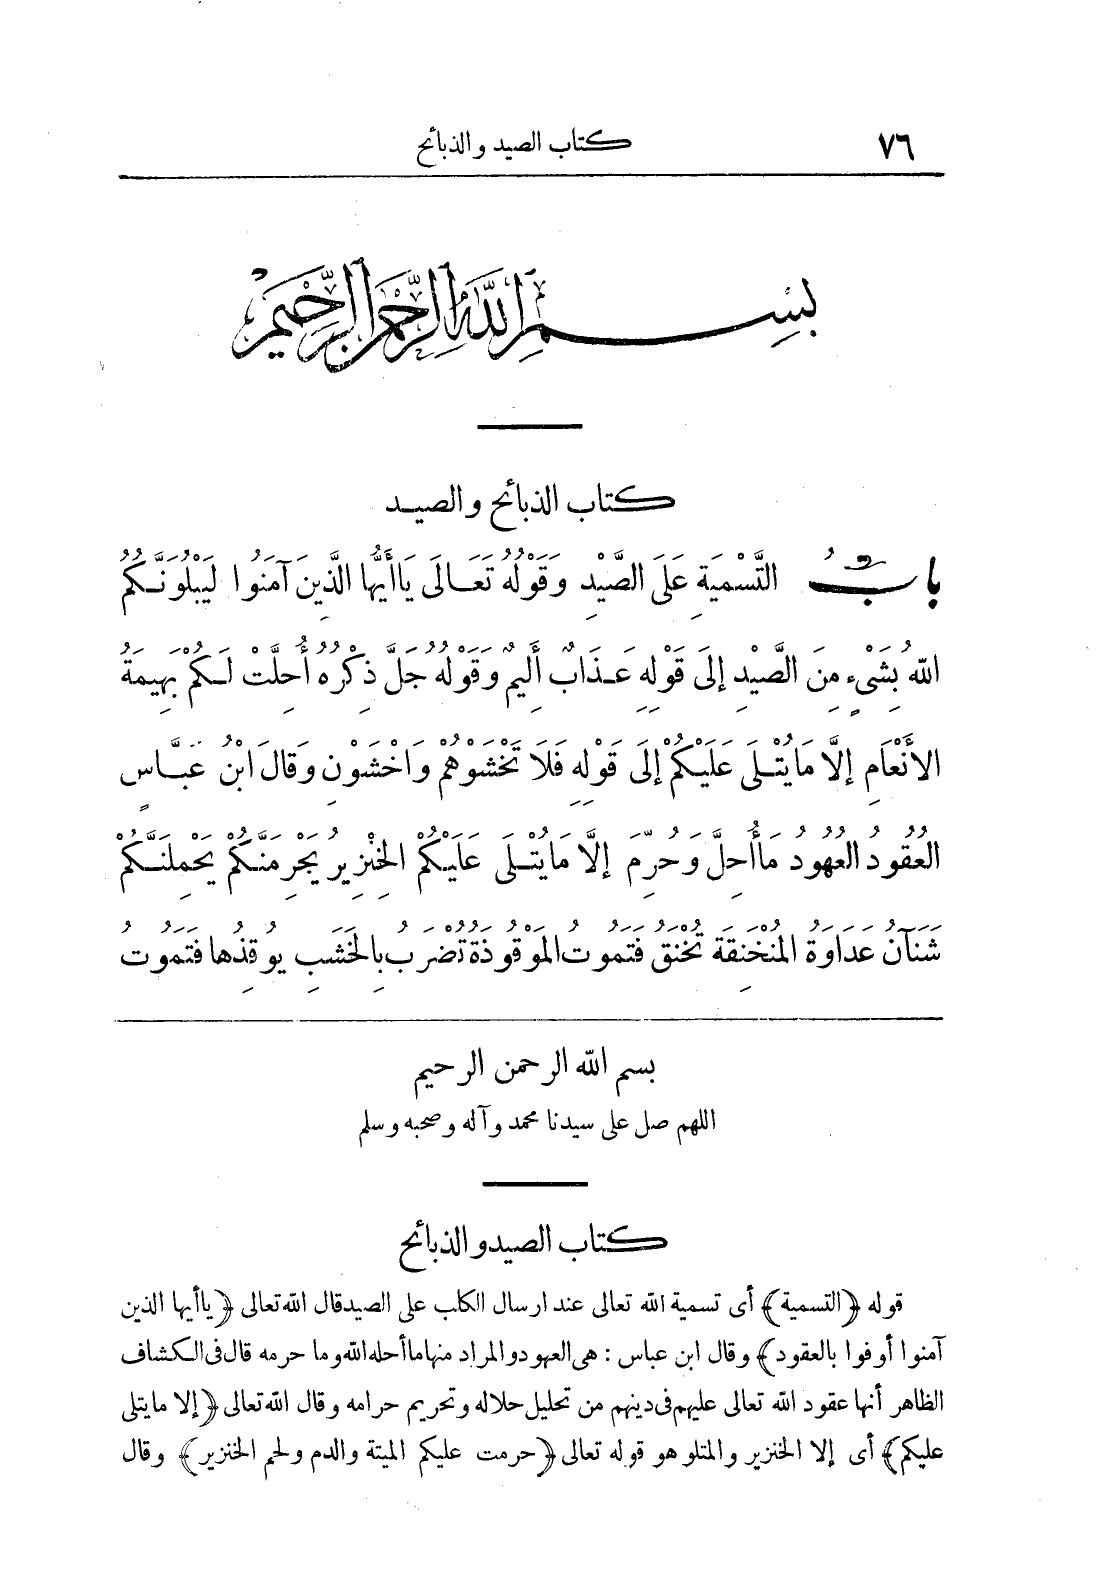 ٧٦
كتاب الصيد والذبائح
بِسْمِ اللهِ الرَّحْمَنِ الرَّحِيمِ
كتاب الذبائح والصيد
بابُ التَّسْمِيَةِ عَلَى الصَّيْدِ وَقَوْلُهُ تَعَالَى يَاأَيُّهَا الَّذِينَ آمَنُوا لَيَبْلُوَنَّكُمُ
اللهُ بِشَيْءٍ مِنَ الصَّيْدِ إِلَى قَوْلِهِ عَذَابٌ أَلِيمٌ وَقَوْلُهُ جَلَّ ذِكْرُهُ أُحِلَّتْ لَكُمْ بَهِيمَةُ
الأَنْعَامِ إِلَّا مَايُتْلَى عَلَيْكُمْ إِلَى قَوْلِهِ فَلَا تَخْشَوْهُمْ وَاخْشَوْنِ وَقَالَ ابْنُ عَبَّاسٍ
الْعُقُودُ الْعُهُودُ مَاأُحِلَّ وَحُرِّمَ إِلَّا مَايُتْلَى عَلَيْكُمُ الْخِنْزِيرُ يَجْرِمَنَّكُمْ يَحْمِلَنَّكُمْ
شَنَآنُ عَدَاوَةُ الْمُنْخَنِقَةُ تُخْنَقُ فَتَمُوتُ الْمَوْقُوذَةُ تُضْرَبُ بِالْخَشَبِ يُوقِذُهَا فَتَمُوتُ
بسم الله الرحمن الرحيم
اللهم صل على سيدنا محمد وآله وصحبه وسلم
كتاب الصيد والذبائح
قوله ﴿التسمية﴾ أى تسمية الله تعالى عند ارسال الكلب على الصيد قال الله تعالى ﴿ياأيها الذين
آمنوا أوفوا بالعقود﴾ وقال ابن عباس : هى العهود والمراد منها ماأحله الله وما حرمه قال فى الكشاف
الظاهر أنها عقود الله تعالى عليهم فى دينهم من تحليل حلاله وتحريم حرامه وقال الله تعالى ﴿إلا مايتلى
عليكم﴾ أى إلا الخنزير والمتلو هو قوله تعالى ﴿حرمت عليكم الميتة والدم ولحم الخنزير﴾ وقال